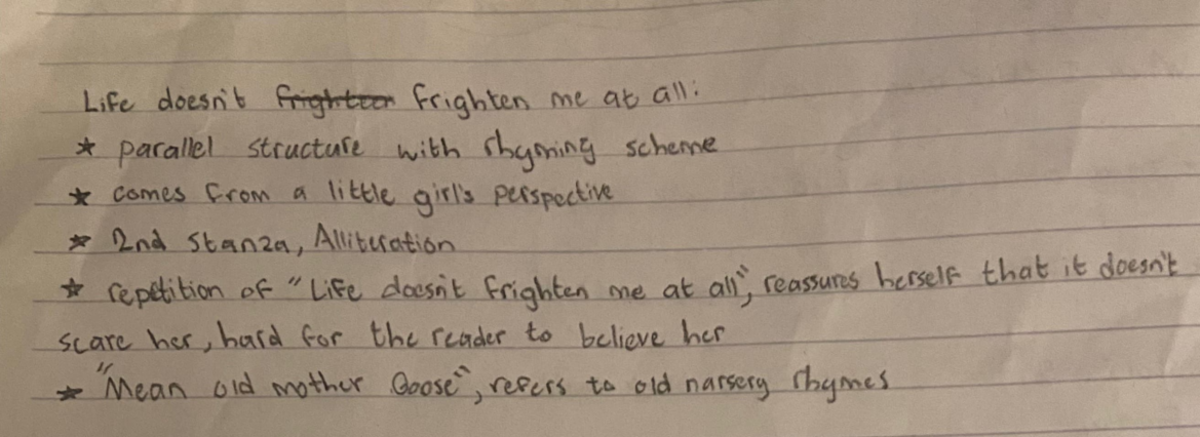 Life doesn't frighten frighten me at all:
* parallel structure with rhyming scheme
* comes from a little girl's perspective
* 2nd stanza, Alliteration
* repetition of "Life doesn't frighten me at all", reassures herself that it doesn't
scare her, hard for the reader to believe her
* "Mean old mother Goose", refers to old narsery rhymes